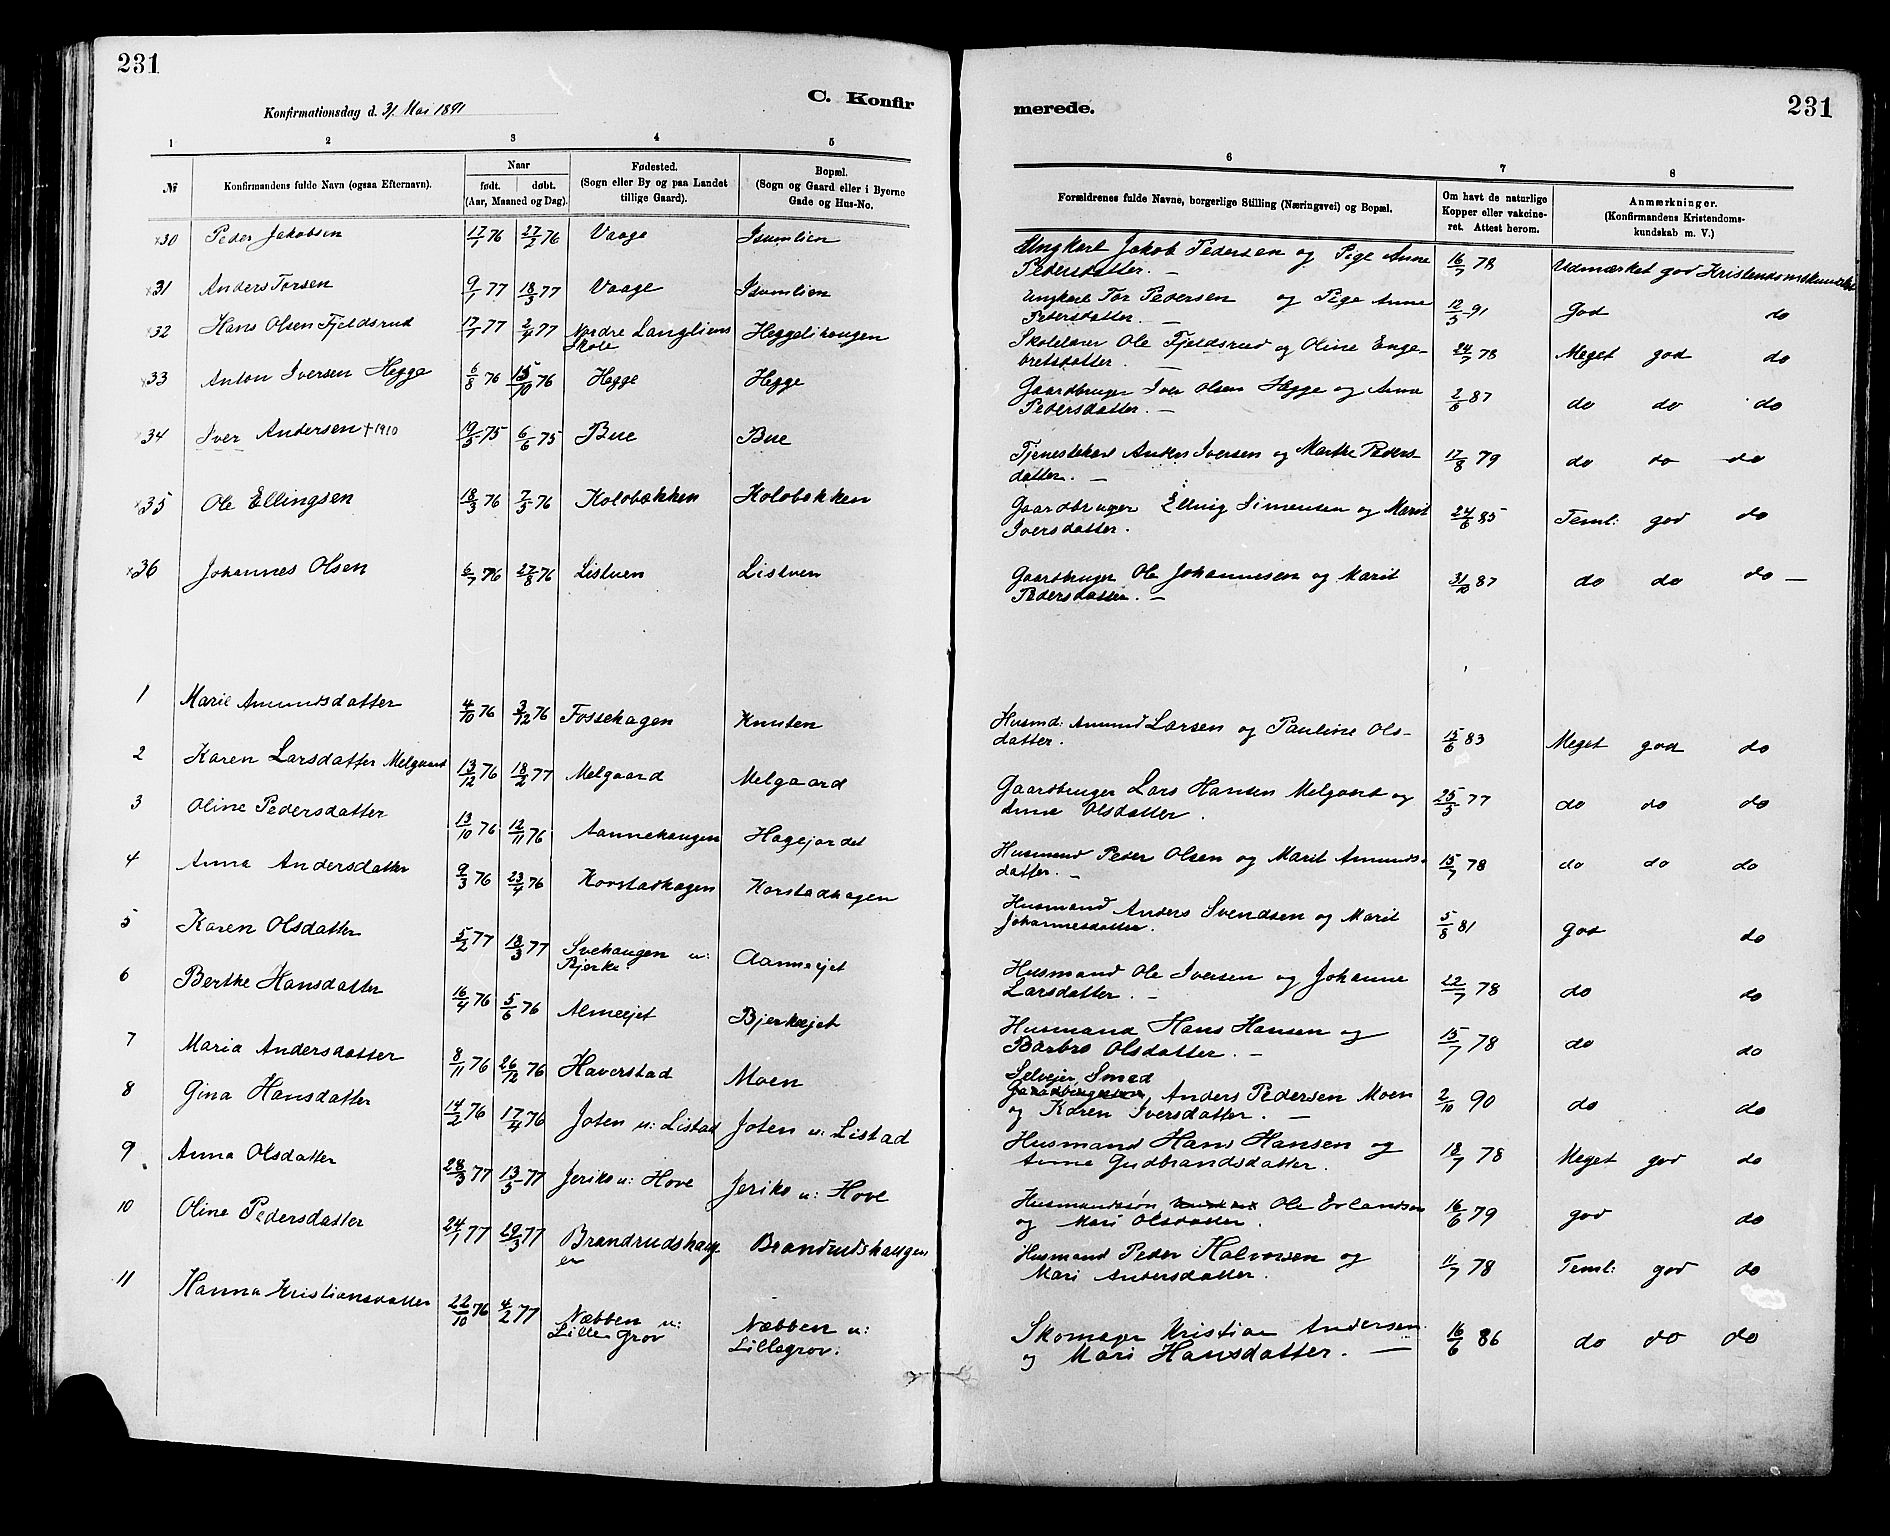 231
Konfirmationsdag d. 31. Mai 1891
C. Konfir
merede.
231
1 2 3 4 5 6 7 8
№
Konfirmandens fulde Navn (ogsaa Efternavn).
Naar
født. døbt.
(Aar, Maaned og Dag).
Fødested.
(Sogn eller By og paa Landet
tillige Gaard).
Bopæl.
(Sogn og Gaard eller i Byerne
Gade og Hus-No.
Forældrenes fulde Navne, borgerlige Stilling (Næringsvei) og Bopæl.
Om havt de naturlige
Kopper eller vakcine-
ret. Attest herom.
Anmærkninger.
(Konfirmandens Kristendoms-
kundskab m. V.)
x30 Peder Jakobsen 17/1 76 27/2 76 Vaage Isumlien Ungkarl Jakob Pedersen og Pige Anne
Pedersdatter. — 16/7 78 Udmærket god Kristendomskundskab
x31 Anders Torsen 9/1 77 18/3 77 Vaage Isumlien Ungkarl Tor Pedersen og Pige Anne
Pedersdatter. — 12/5 91 God do
x32 Hans Olsen Fjeldsrud 17/1 77 2/4 77 Nordre Langliens
Skole Heggelihaugen Skolelærer Ole Fjeldsrud og Oline Enge-
bretsdatter. — 24/7 78 Meget god do
x33 Anton Iversen Hegge 6/8 76 15/10 76 Hegge Hegge Gaardbruger Iver Olsen Hegge og Anne
Pedersdatter. — 2/6 87 do do do
x34 Iver Andersen †1910 19/3 75 6/6 75 Bue Bue Tjenestekarl Anders Iversen og Marthe Peders-
datter. — 17/8 79 do do do
x35 Ole Ellingsen 18/3 76 7/5 76 Kolobækken Kolobækken Gaardbruger Elling Simensen og Marit
Iversdatter. 24/6 85 Teml: god do
x36 Johannes Olsen 6/7 76 27/8 76 Listuen Listuen Gaardbruger Ole Johannesen og Marit
Pedersdatter. — 31/10 87 do do do —
1 Marie Amundsdatter 4/10 76 3/12 76 Fossehagen Knuten Husmd: Amund Larsen og Pauline Ols-
datter. 15/6 83 Meget god do
2 Karen Larsdatter Melgaard 13/12 76 18/2 77 Melgaard Melgaard Gaardbruger Lars Hansen Melgaard og
Anne Olsdatter. 25/5 77 do do do
3 Oline Pedersdatter 13/10 76 12/11 76 Aannehaugen Hagejordet Husmand Peder Olsen og Marit Amunds-
datter. — 15/7 78 do do do
4 Anna Andersdatter 9/3 76 23/4 76 Korstadhagen Korstadhagen Husmand Anders Svendsen og Marit
Johannesdatter. 5/8 81 god do
5 Karen Olsdatter 5/2 77 18/3 77 Svehaugen u:
Bjerke. Aanneejet Husmand Ole Iversen og Johanne
Larsdatter. — 22/7 78 do do
6 Berthe Hansdatter 16/4 76 5/6 76 Almeejet Bjerkeejet Husmand Hans Hansen og
Barbro Olsdatter. — 15/7 78 do do
7 Maria Andersdatter 8/11 76 26/12 76 Haverstad Moen Selvejer, Smed
Gaardbrugeren, Anders Pedersen Moen
og Karen Iversdatter. — 2/10 90 do do
8 Gina Hansdatter 14/2 76 17/4 76 Joten u: Listad Joten u: Listad Husmand Hans Hansen og
Anne Gudbrandsdatter. 18/7 78 Meget god do
9 Anna Olsdatter 28/3 77 13/5 77 Jeriko u: Hove Jeriko u: Hove Husmandssøn Ole Erlandsen
og Mari Olsdatter. 16/6 79 god do
10 Oline Pedersdatter 24/1 77 19/3 77 Brandrudshaug
en Brandrudshaugen Husmand Peder Halvorsen og
Mari Andersdatter. 11/7 78 Teml: god do
11 Hanna Kristiansdatter 22/10 76 4/2 77 Næbben u:
Lille Grov Næbben u:
Lillegrov: Skomager Kristian Andersen
og Mari Hansdatter. — 16/6 86 do do do